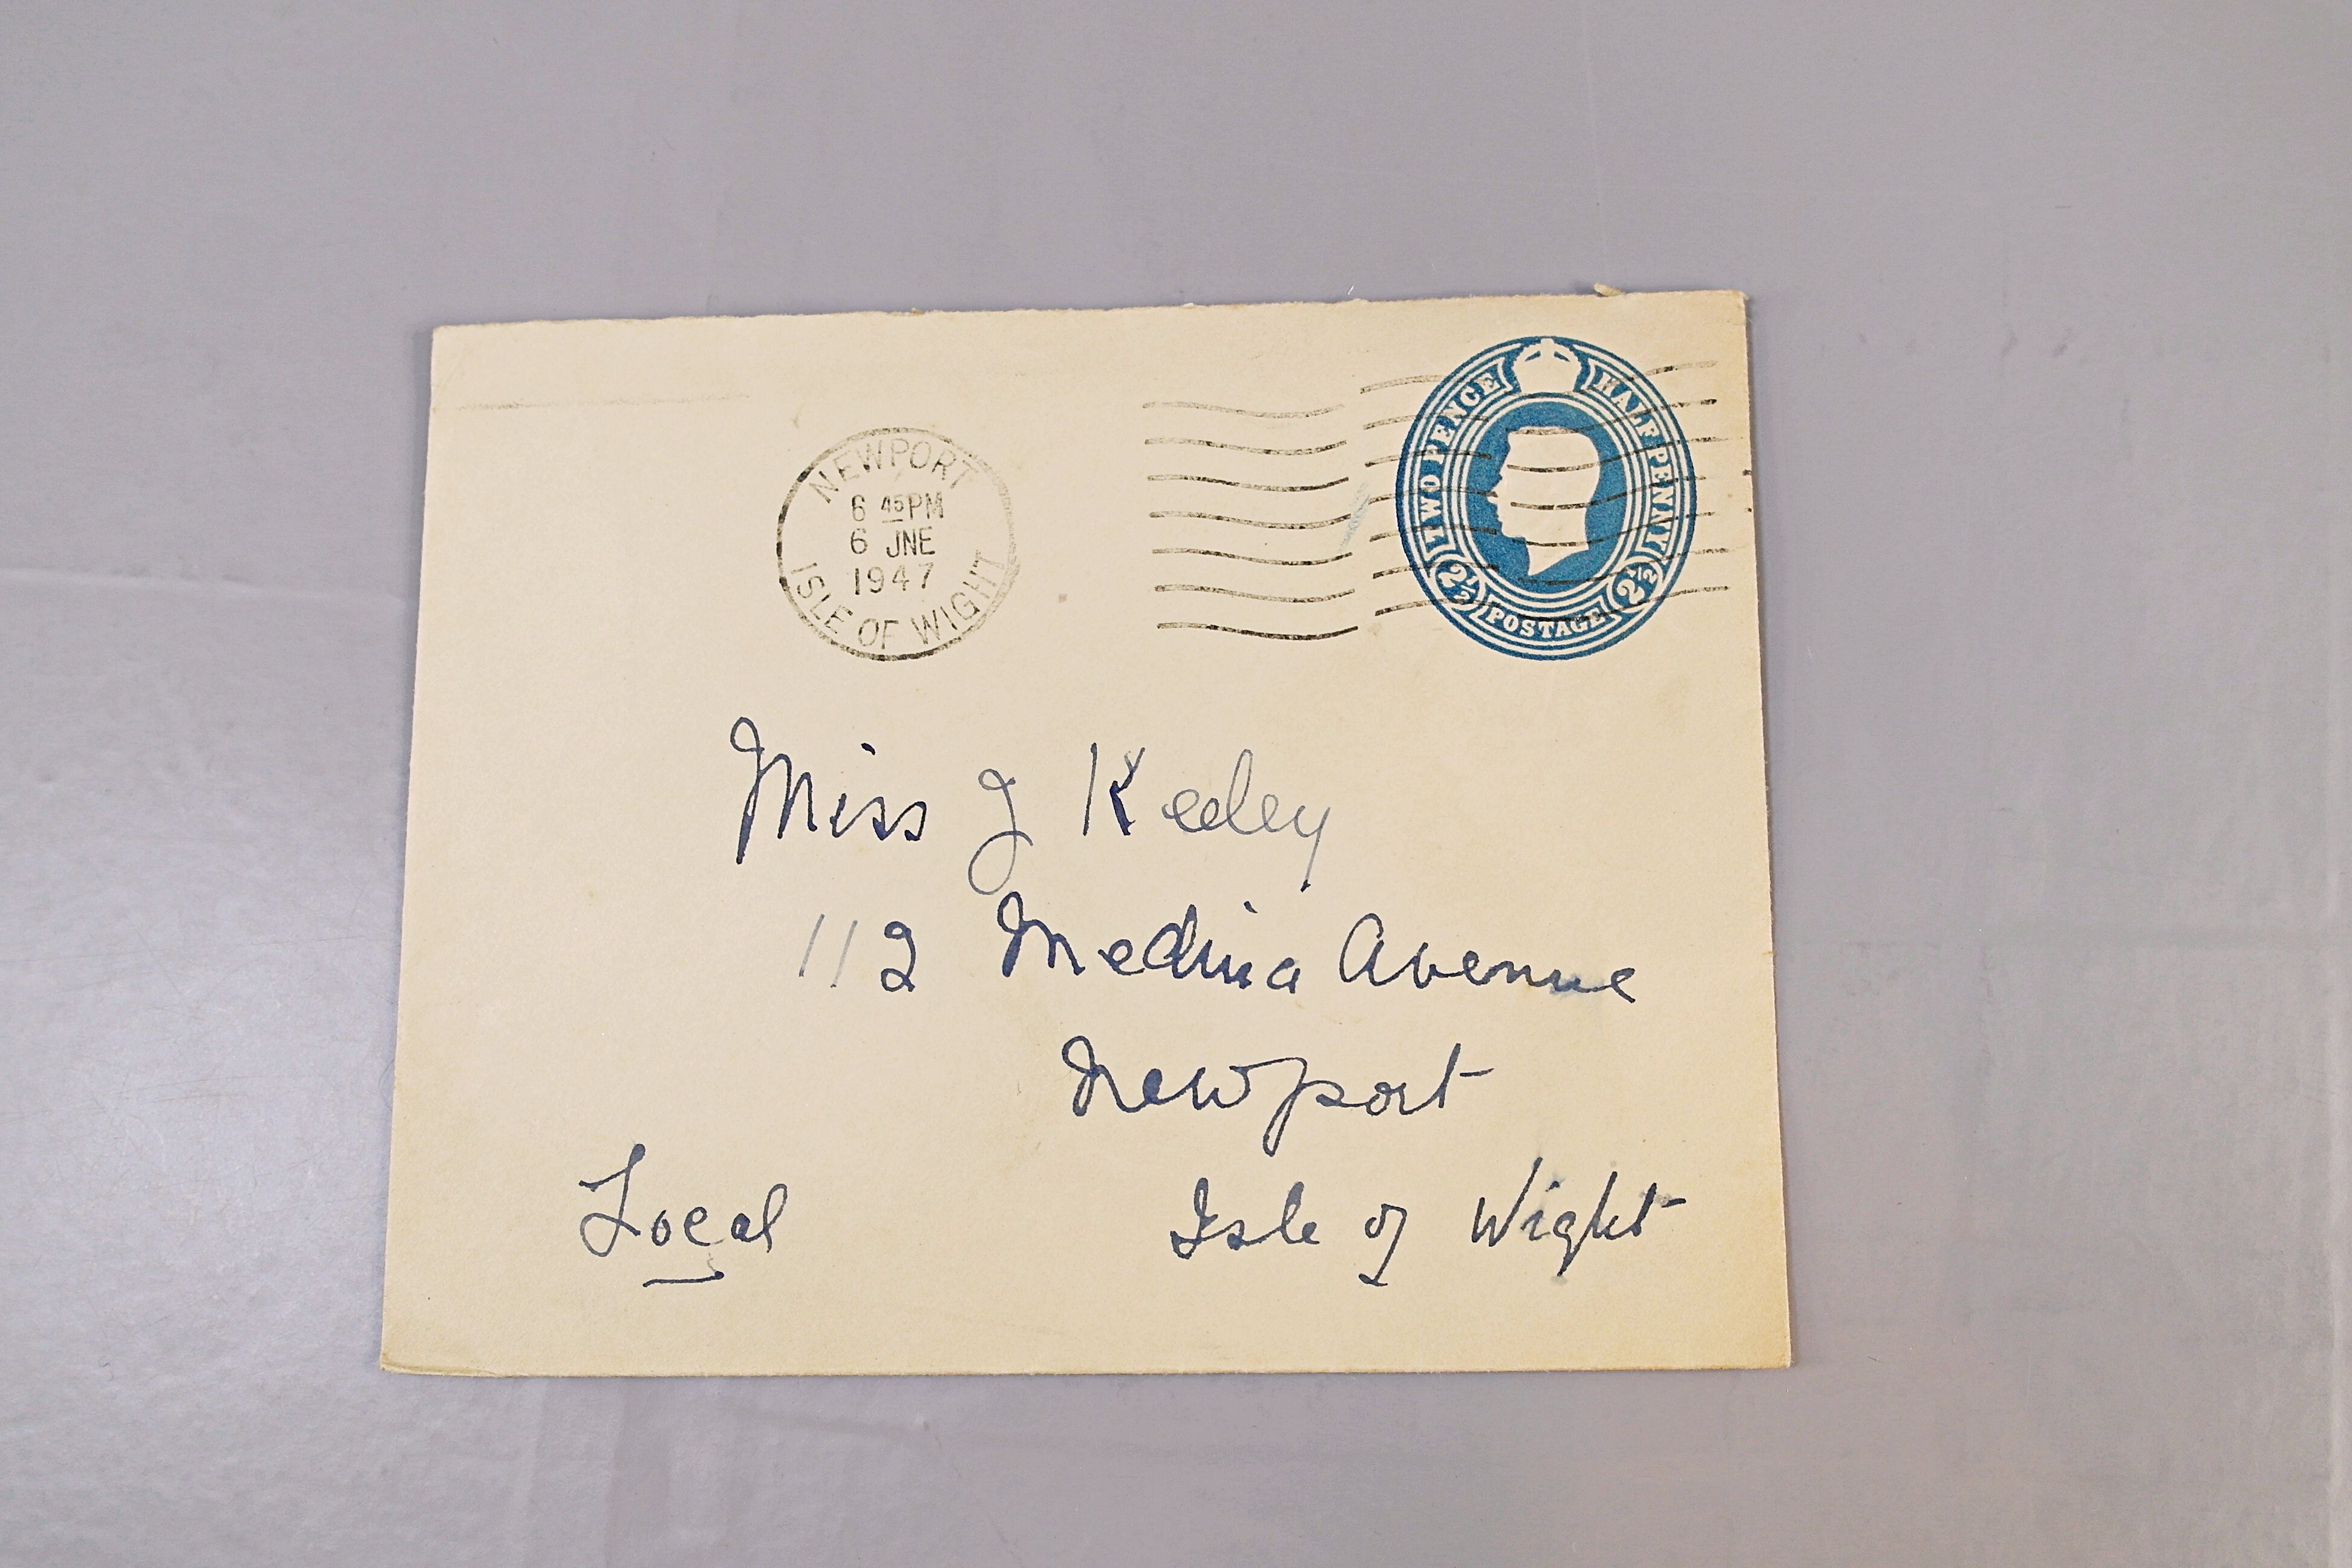 NEWPORT
6 45PM
6 JNE
1947
ISLE OF WIGHT
TWO PENCE HALFPENNY
2½ POSTAGE 2½
Miss J Keeley
112 Medina Avenue
Newport
Local Isle of Wight